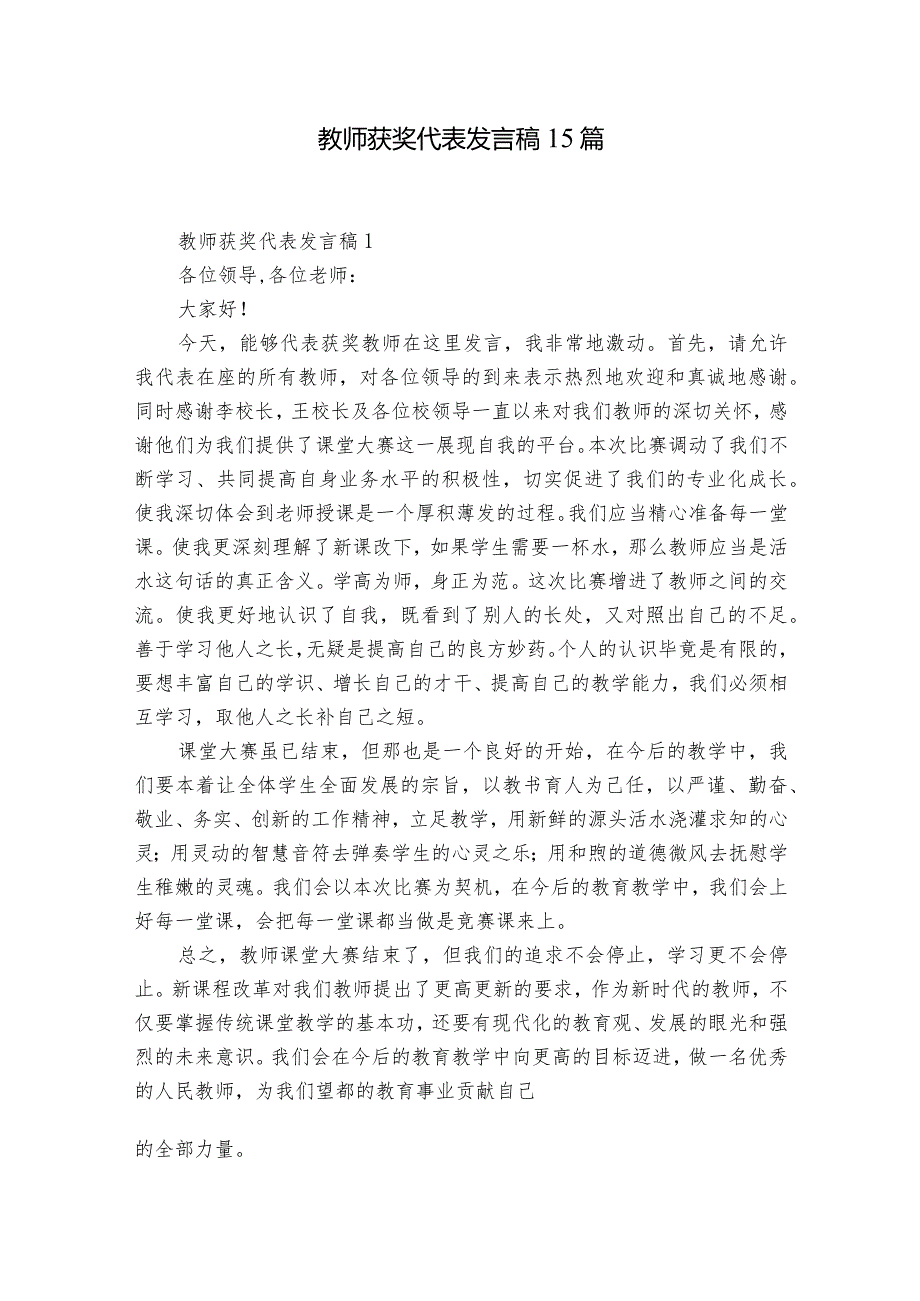 教师获奖代表发言稿 15 篇
教师获奖代表发言稿 1
各位领导,各位老师：
大家好！
今天，能够代表获奖教师在这里发言，我非常地激动。首先，请允许
我代表在座的所有教师，对各位领导的到来表示热烈地欢迎和真诚地感谢。
同时感谢李校长，王校长及各位校领导一直以来对我们教师的深切关怀，感
谢他们为我们提供了课堂大赛这一展现自我的平台。本次比赛调动了我们不
断学习、共同提高自身业务水平的积极性，切实促进了我们的专业化成长。
使我深切体会到老师授课是一个厚积薄发的过程。我们应当精心准备每一堂
课。使我更深刻理解了新课改下，如果学生需要一杯水，那么教师应当是活
水这句话的真正含义。学高为师，身正为范。这次比赛增进了教师之间的交
流。使我更好地认识了自我，既看到了别人的长处，又对照出自己的不足。
善于学习他人之长，无疑是提高自己的良方妙药。个人的认识毕竟是有限的，
要想丰富自己的学识、增长自己的才干、提高自己的教学能力，我们必须相
互学习，取他人之长补自己之短。
课堂大赛虽已结束，但那也是一个良好的开始，在今后的教学中，我
们要本着让全体学生全面发展的宗旨，以教书育人为己任，以严谨、勤奋、
敬业、务实、创新的工作精神，立足教学，用新鲜的源头活水浇灌求知的心
灵；用灵动的智慧音符去弹奏学生的心灵之乐；用和煦的道德微风去抚慰学
生稚嫩的灵魂。我们会以本次比赛为契机，在今后的教育教学中，我们会上
好每一堂课，会把每一堂课都当做是竞赛课来上。
总之，教师课堂大赛结束了，但我们的追求不会停止，学习更不会停
止。新课程改革对我们教师提出了更高更新的要求，作为新时代的教师，不
仅要掌握传统课堂教学的基本功，还要有现代化的教育观、发展的眼光和强
烈的未来意识。我们会在今后的教育教学中向更高的目标迈进，做一名优秀
的人民教师，为我们望都的教育事业贡献自己
的全部力量。